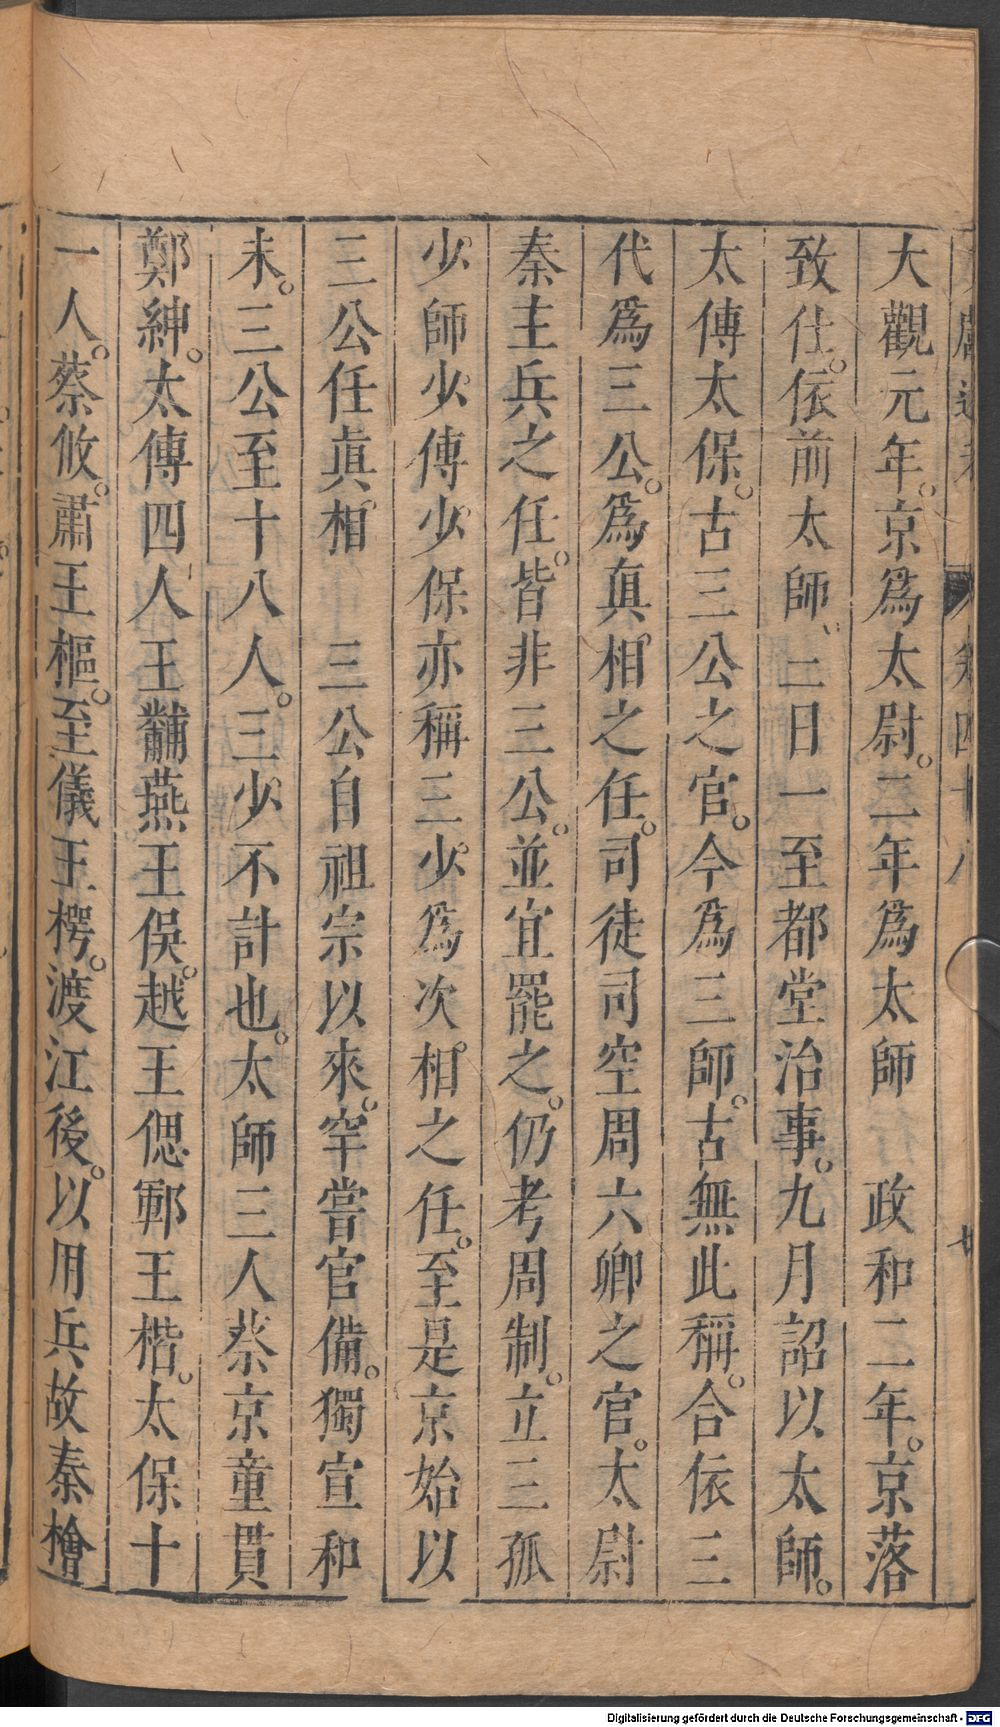 大觀元年。京爲太尉。二年爲太師 政和二年。京落
致仕。依前太師。三日一至都堂治事。九月詔以太師。
太傅太保。古三公之官。今爲三師。古無此稱。合依三
代爲三公。爲真相之任。司徒司空周六卿之官。太尉
秦主兵之任。皆非三公。並宜罷之。仍考周制。立三孤
少師少傅少保亦稱三少。爲次相之任。至是京始以
三公任眞相 三公自祖宗以來。罕嘗官備。獨宣和
末。三公至十八人。三少不計也。太師三人蔡京童貫
鄭紳。太傅四人王黼燕王俣。越王偲鄆王楷。太保十
一人。蔡攸。肅王樞。至儀王㮙。渡江後。以用兵故秦檜
卷四十八
Digitalisierung gefördert durch die Deutsche Forschungsgemeinschaft - DFG